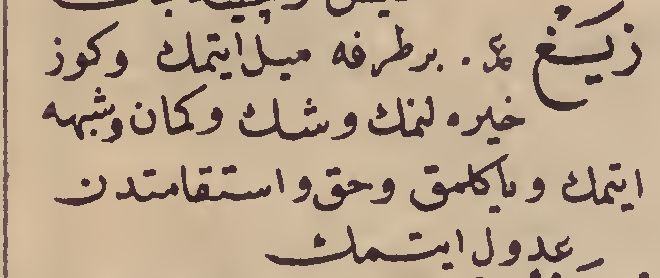 زَيْغ ع . بر طرفه ميل ايتمك وكوز
خيره لنمك وشك وكمان وشبهه
ايتمك وياكلمق وحق واستقامتدن
عدول ايتمك